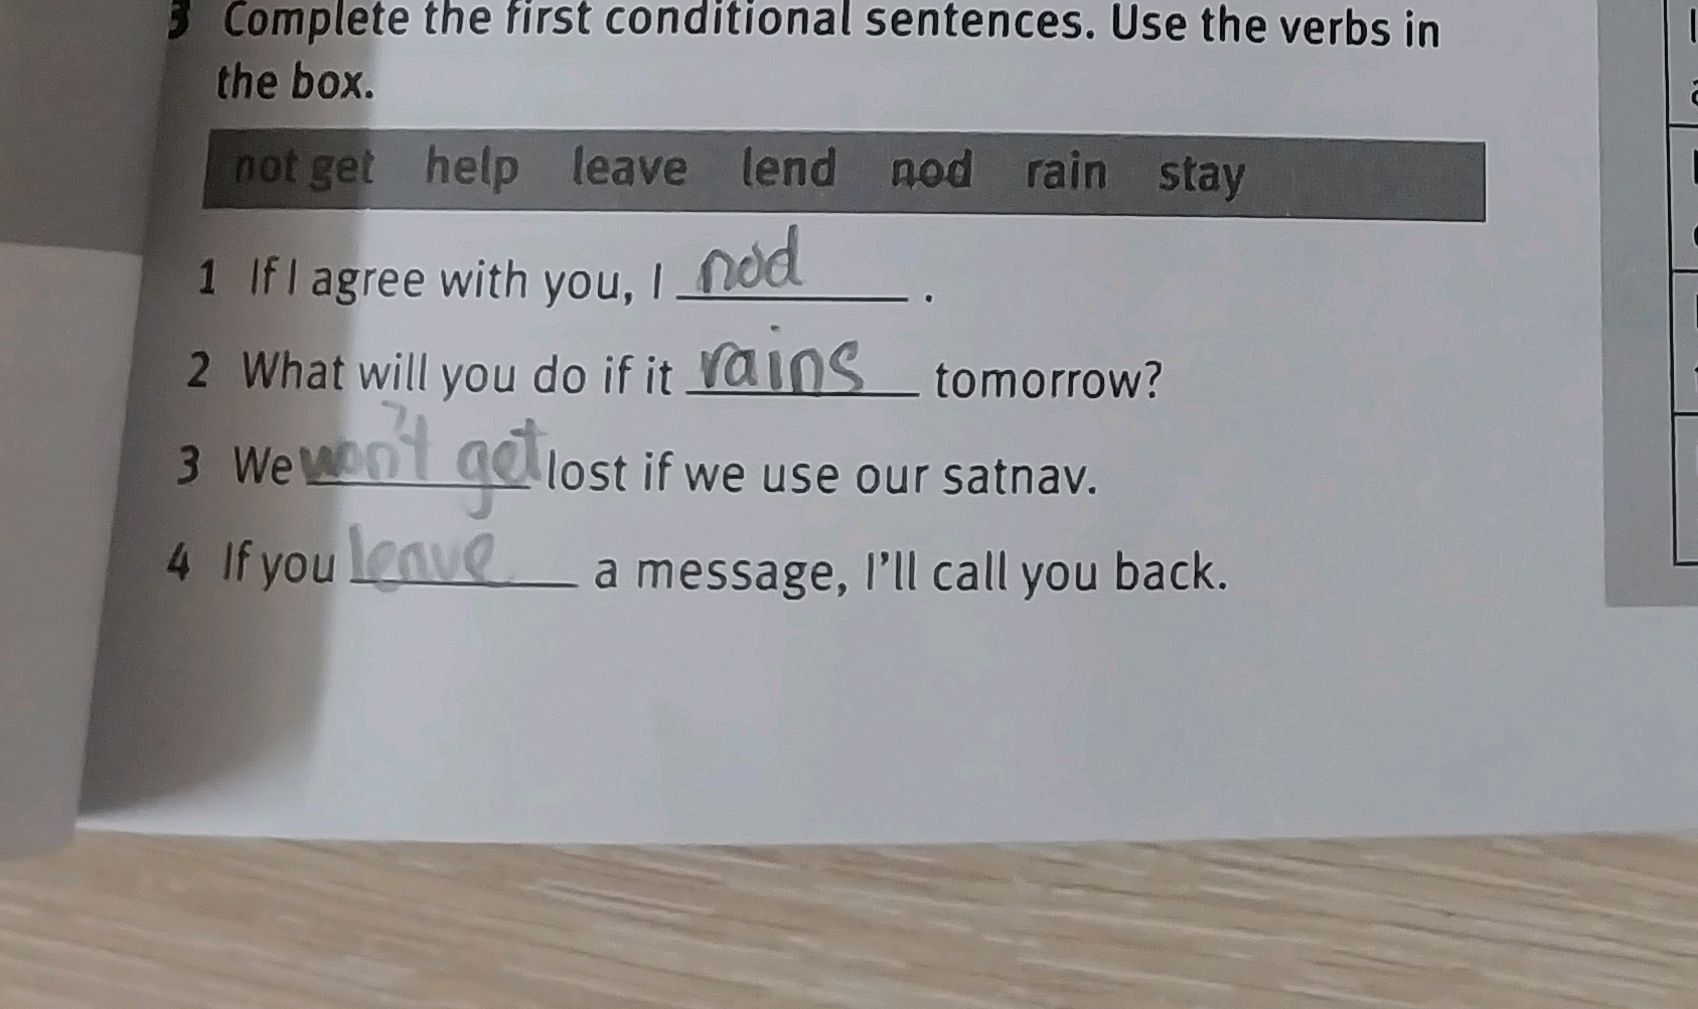 3 Complete the first conditional sentences. Use the verbs in
the box.
not get help leave lend nod rain stay
1 If I agree with you, I nod .
2 What will you do if it rains tomorrow?
3 We won't get lost if we use our satnav.
4 If you leave a message, I'll call you back.